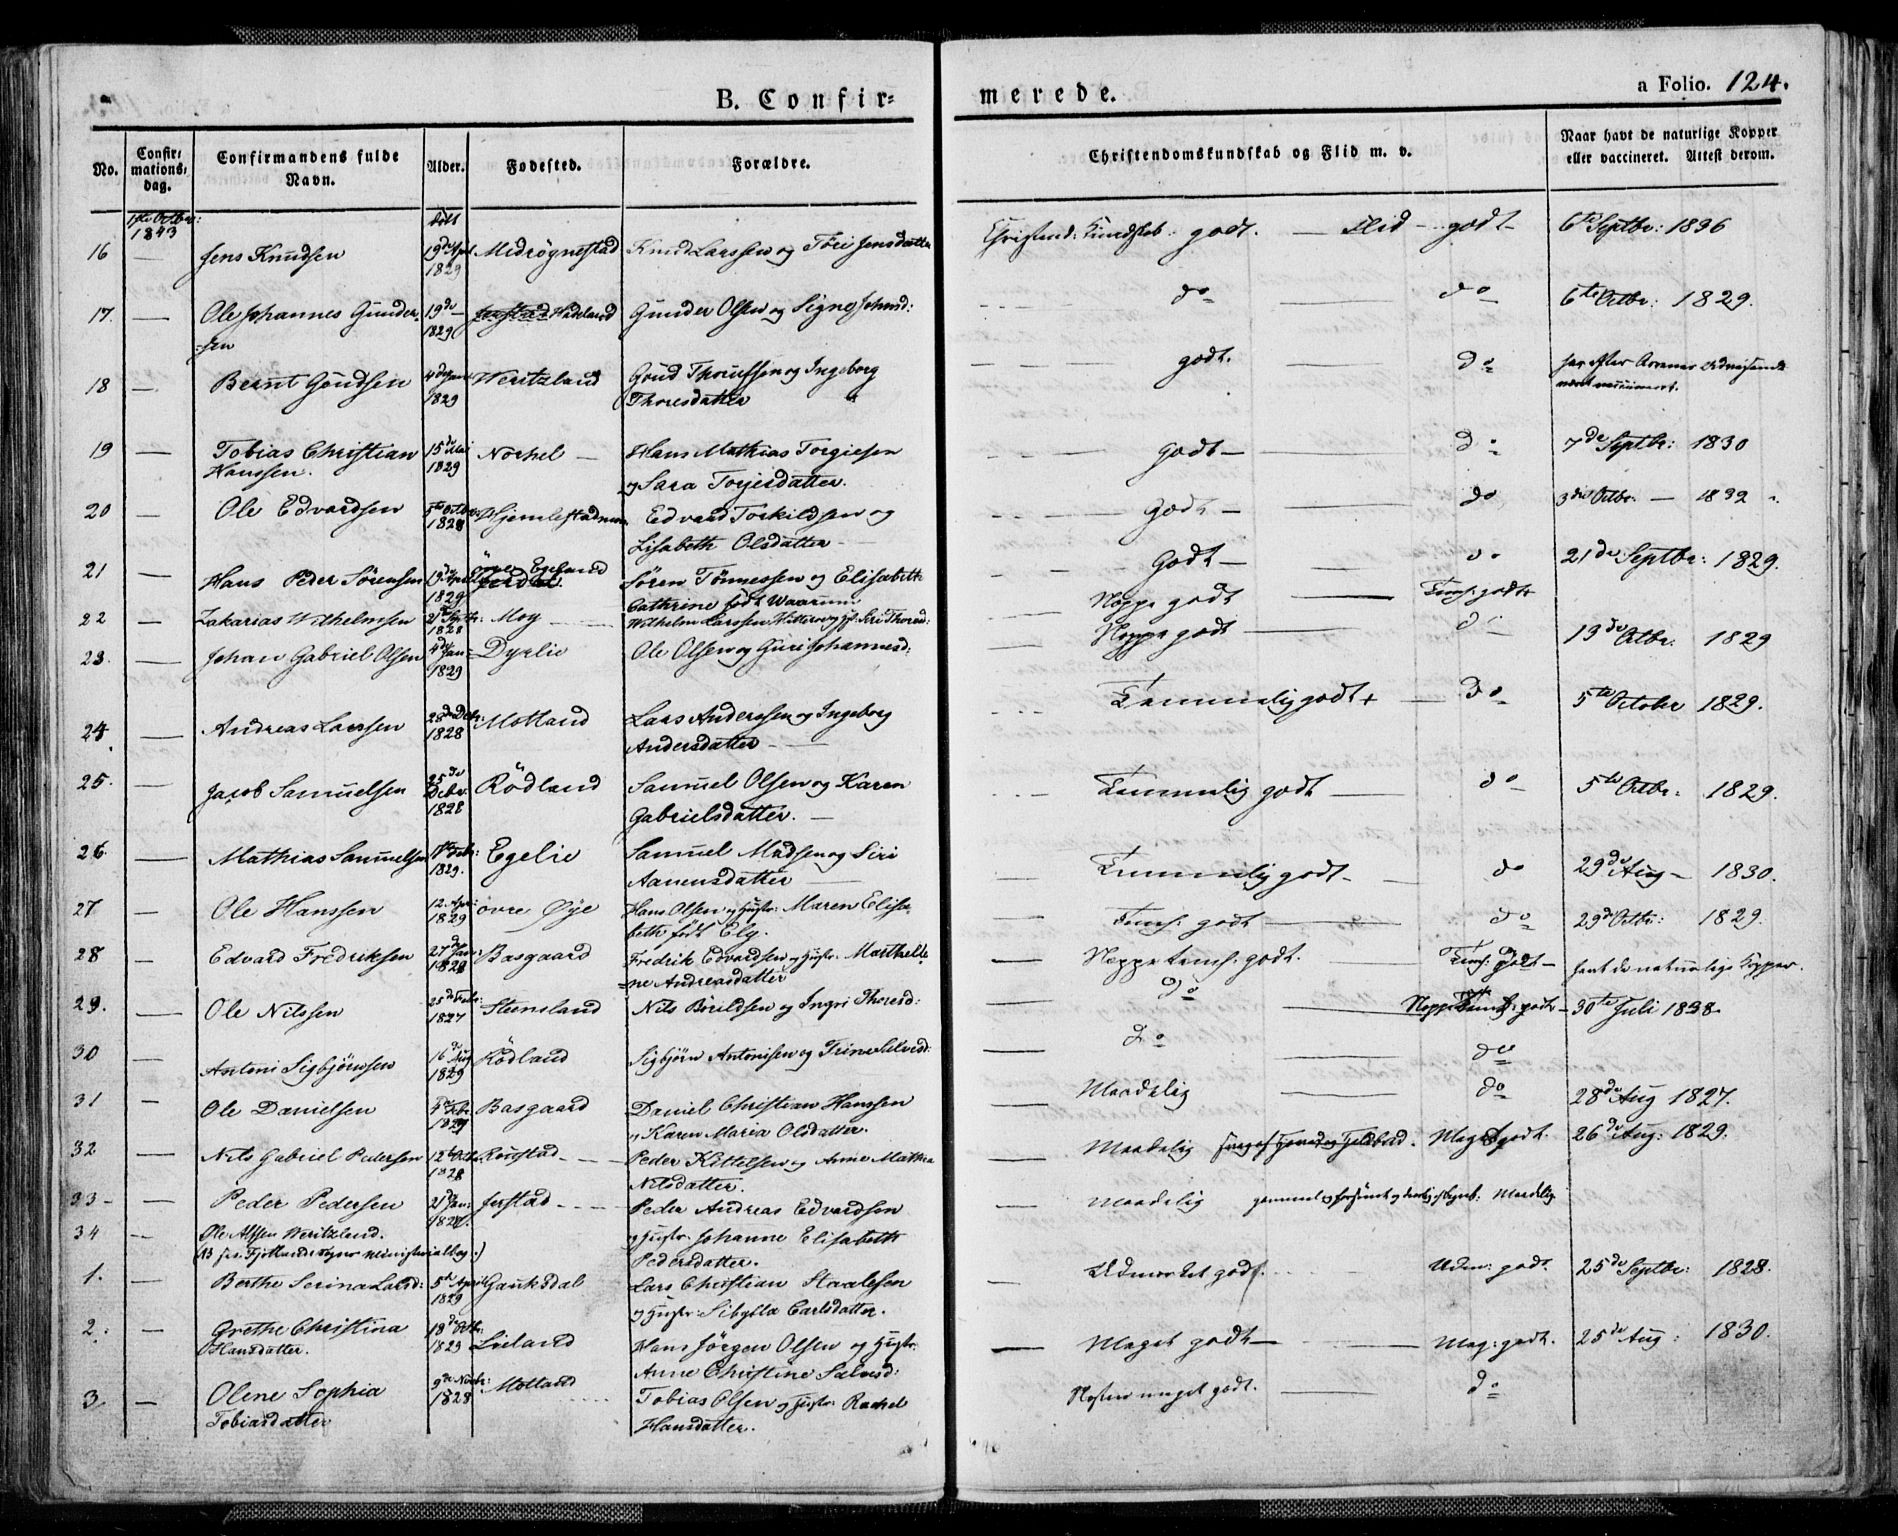 B. Confirmerede.
a Folio. 124.
No. Confirmationsdag. Confirmandens fulde Navn. Alder. Fødested. Forældre. Christendomskundskab og Flid m. v. Naar havt de naturlige Kopper eller vaccineret. Attest derom.
1ste Octbr: 1843 født
16 — Jens Knudsen 19de Apr 1829 Midrögnestad Knud Larssen og Tori Jensdatter Christend: Kundskab: godt. — Flid — godt — 6te Septbr: 1836
17. — Ole Johannes Gunder-
sen 19de — 1829 Hadeland Gunder Olsen og Signe Johnsd: do do 6te Octbr: 1829.
18 — Bernt Gundsen 4de Jan 1829 Weritzland Gund Thorufsen og Ingeborg
Thoresdatter godt. do
19 — Tobias Christian
Hanssen. 15de Mai 1829 Norhel — Hans Mathias Torgiesen
og Sara Torjesdatter. Godt — do 7de Septbr: 1830
20 — Ole Edvardsen 5te Octbr 1828 Hjemlestadmoen Edvard Torkildsen og
Lisabeth Olsdatter — Godt — do 3die Octbr. — 1832
21 — Hans Peder Sörensen 19de April 1829 Övre Egeland Sören Tönnessen og Elisabeth
Cathrine født Waarum Godt — do 21de Septbr: 1829.
22 — Zakarias Wilhelmsen 21de Septbr: 1828 Moy Wilhelm Larssen og Siri Thoresd: Noppe godt Tems: godt
23. — Johan Gabriel Olsen 4de Jan 1829 Dyrlie Ole Olsen og Guri Johannesd: Noppe godt do 13de Octbr. 1829
24. — Andreas Larssen 28de Debr: 1828 Motland Lars Anderssen og Ingeborg
Andersdatter — Temmelig godt + do 5te October 1829.
25. — Jacob Samuelsen 25de Debr. 1828 Rödland Samuel Olsen og Karen
Gabrielsdatter. — Temmelig godt — do 5te Octbr. 1829.
26. — Mathias Samuelsen 17de Febr: 1829. Egelie Samuel Madsen og Siri
Aanensdatter — Temmelig godt — do 29de Aug — 1830.
27 — Ole Hanssen 12. Apr: 1829 övre Øye Hans Olsen og Hustr: Maren Elisa-
beth født Ely. Tems: godt — do 29de Octbr: 1829.
28 — Edvard Fredriksen 27de Jan: 1828 Basgaard Fredrik Edvardsen og Hustr: Marthelle
=ne Andreasdatter Noppe tems: godt. Tems: godt — havt de naturlige Kopper.
29. — Ole Nilssen 25de Febr: 1827 Steensland Nils Böeildsen og Ingri Thoresd: do Noppe tems: godt — 30te Juli 1838
30 — Antoni Sigbjörnsen 16de Aug 1829 Rödland Sigbjörn Antonisen og Trine Salvesd: do do
31 — Ole Danielsen 1829 Basgaard Daniel Christian Hanssen
og Karen Maria Olsdatter. Maadelig do 28de Aug 1827.
32 — Nils Gabriel Pedersen 12te Octbr. 1828 Röustad Peder Kittelsen og Anne Mathea
Nilsdatter. Maadelig Meget godt. 26de Aug: 1829.
33 — Peder Pedersen 21de Jan: 1827. Jerstad Peder Andreas Edvardsen
og Hustr. Johanne Elisabeth
Pedersdatter. Maadelig Maadelig
34 — Ole Alfsen Weritzland.
(13 fra Fjotlands Sogns ministerialbog.)
1. — Berthe Serina Larsd: 5te April 1829 Gauksdal Lars Christian Staalesen
og Hustr: Sibylla Carlsdatter. Udmærket godt. Udm: godt 25de Septbr: 1828.
2. — Grethe Christina
Hansdatter. 18de Octbr: 1829 Lieland Hans Jörgen Olsen og Hustr.
Anne Christine Salvesd: Meget godt — Meg: godt. 25de Aug: 1830.
3. — Olene Sophia
Tobiasdatter 9de Novbr: 1828 Motland Tobias Olsen og Hustr: Rachel
Hansdatter. Næsten meget godt. do